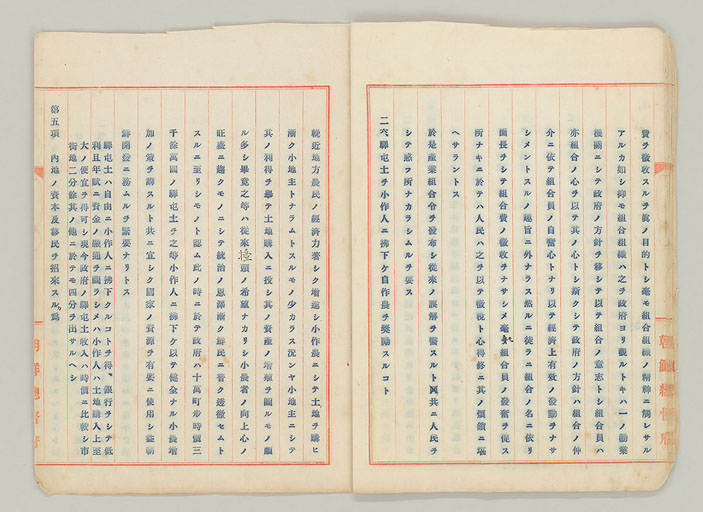 費ヲ徴收スルヲ眞ノ目的トシ毫モ組合組織ノ精神ニ觸レサル
アルカ如シ抑モ組合組織ハ之ヲ政府ヨリ觀ルトキハ一ノ勸業
機關ニシテ政府ノ方針ヲ移シテ以テ組合ノ意志トシ組合員ハ
亦組合ノ心ヲ以テ其ノ心トシ斯クシテ政府ノ方針ハ組合ノ仲
介ニ依テ組合員ノ自奮心トナリ以テ經濟上有效ノ發動ヲナサ
シメントスルノ趣旨ニ外ナラス然ルニ徒ラニ組合ノ名ニ依リ
面長ヲシテ組合費ノ徴收ヲナサシメ毫モ組合員ノ發奮ヲ促ス
所ナキニ於テハ人民ハ之ヲ以テ徴税ト心得終ニ其ノ煩鎖ニ堪
ヘサラントス
於是産業組合令ヲ發布シ從來ノ誤解ヲ醫スルト同共ニ人民ヲ
シテ惑フ所ナカラシムルヲ要ス
二六 驛屯土ヲ小作人ニ拂下ケ自作農ヲ奬勵スルコト
輓近地方農民ノ經濟力著シク増進シ小作農ニシテ土地ヲ購ヒ
漸ク小地主トナラムトスルモノ少カラス況ンヤ小地主ニシテ
其ノ利得ヲ擧テ土地購入ニ投シ其ノ資産ノ増殖ヲ圖ルモノ頗
ル多シ畢竟之等ハ從來擡頭ノ希望ナカリシ小農者ノ向上心ノ
旺盛ニ趨クモノニシテ統治ノ恩澤漸ク鮮民ニ普ク透徹セムト
スルニ至リシモノト認ム此ノ時ニ於テ政府ハ十萬町歩時價三
千餘萬圓ノ驛屯土ヲ之等小作人ニ拂下ケ以テ健全ナル小農増
加ノ策ヲ講スルト共ニ宜シク國家ノ資源ヲ有要ニ使用シ益朝
鮮開發ニ務ムルヲ緊要ナリトス
驛屯土ハ自由ニ小作人ニ拂下クルコトヲ得、銀行ヲシテ低
利且年賦ニ資金ノ融通ヲ圖ラシメハ小作人ハ土地購入上至
大ノ便宜ヲ得可シ現今政府ノ驛屯土收入ハ時價ニ比較シ市
街地二分餘其ノ他ニ於テモ四分ヲ出サルヘシ
第五項 内地ノ資本及移民ヲ招來スル爲
朝鮮總督府
朝鮮總督府